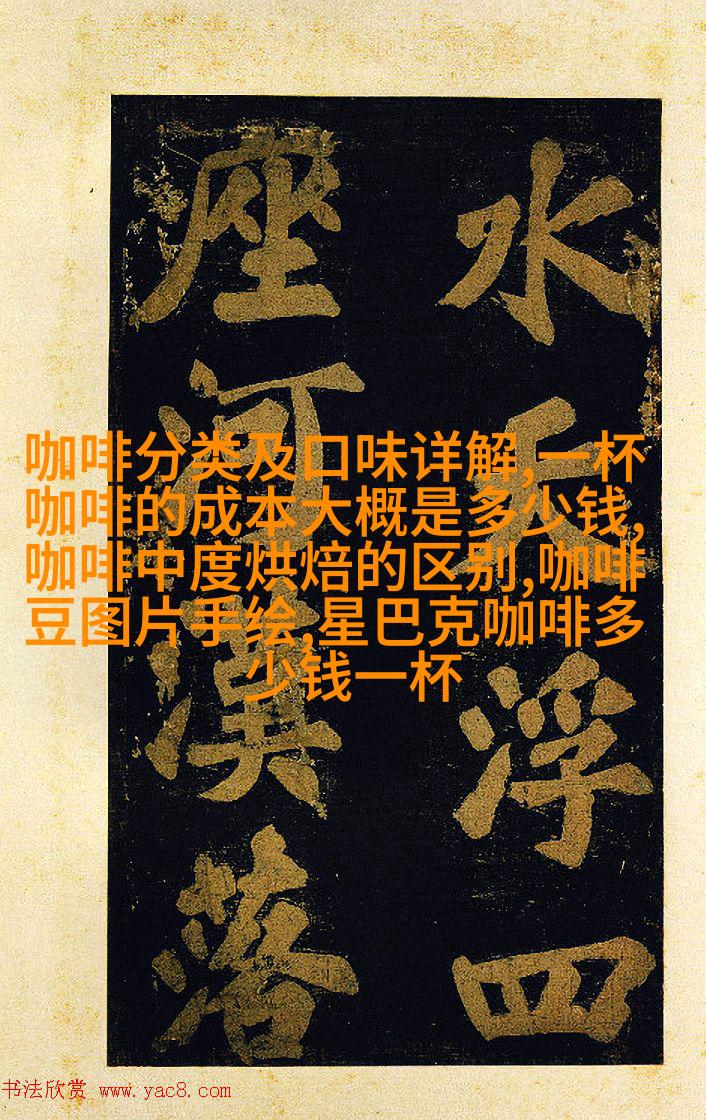 水浮四
座河漢落
咖啡分类及口味详解,一杯
咖啡的成本大概是多少钱,
咖啡中度烘焙的区别,咖啡
豆图片手绘,星巴克咖啡多
少钱一杯
书法欣赏 www.yac8.com